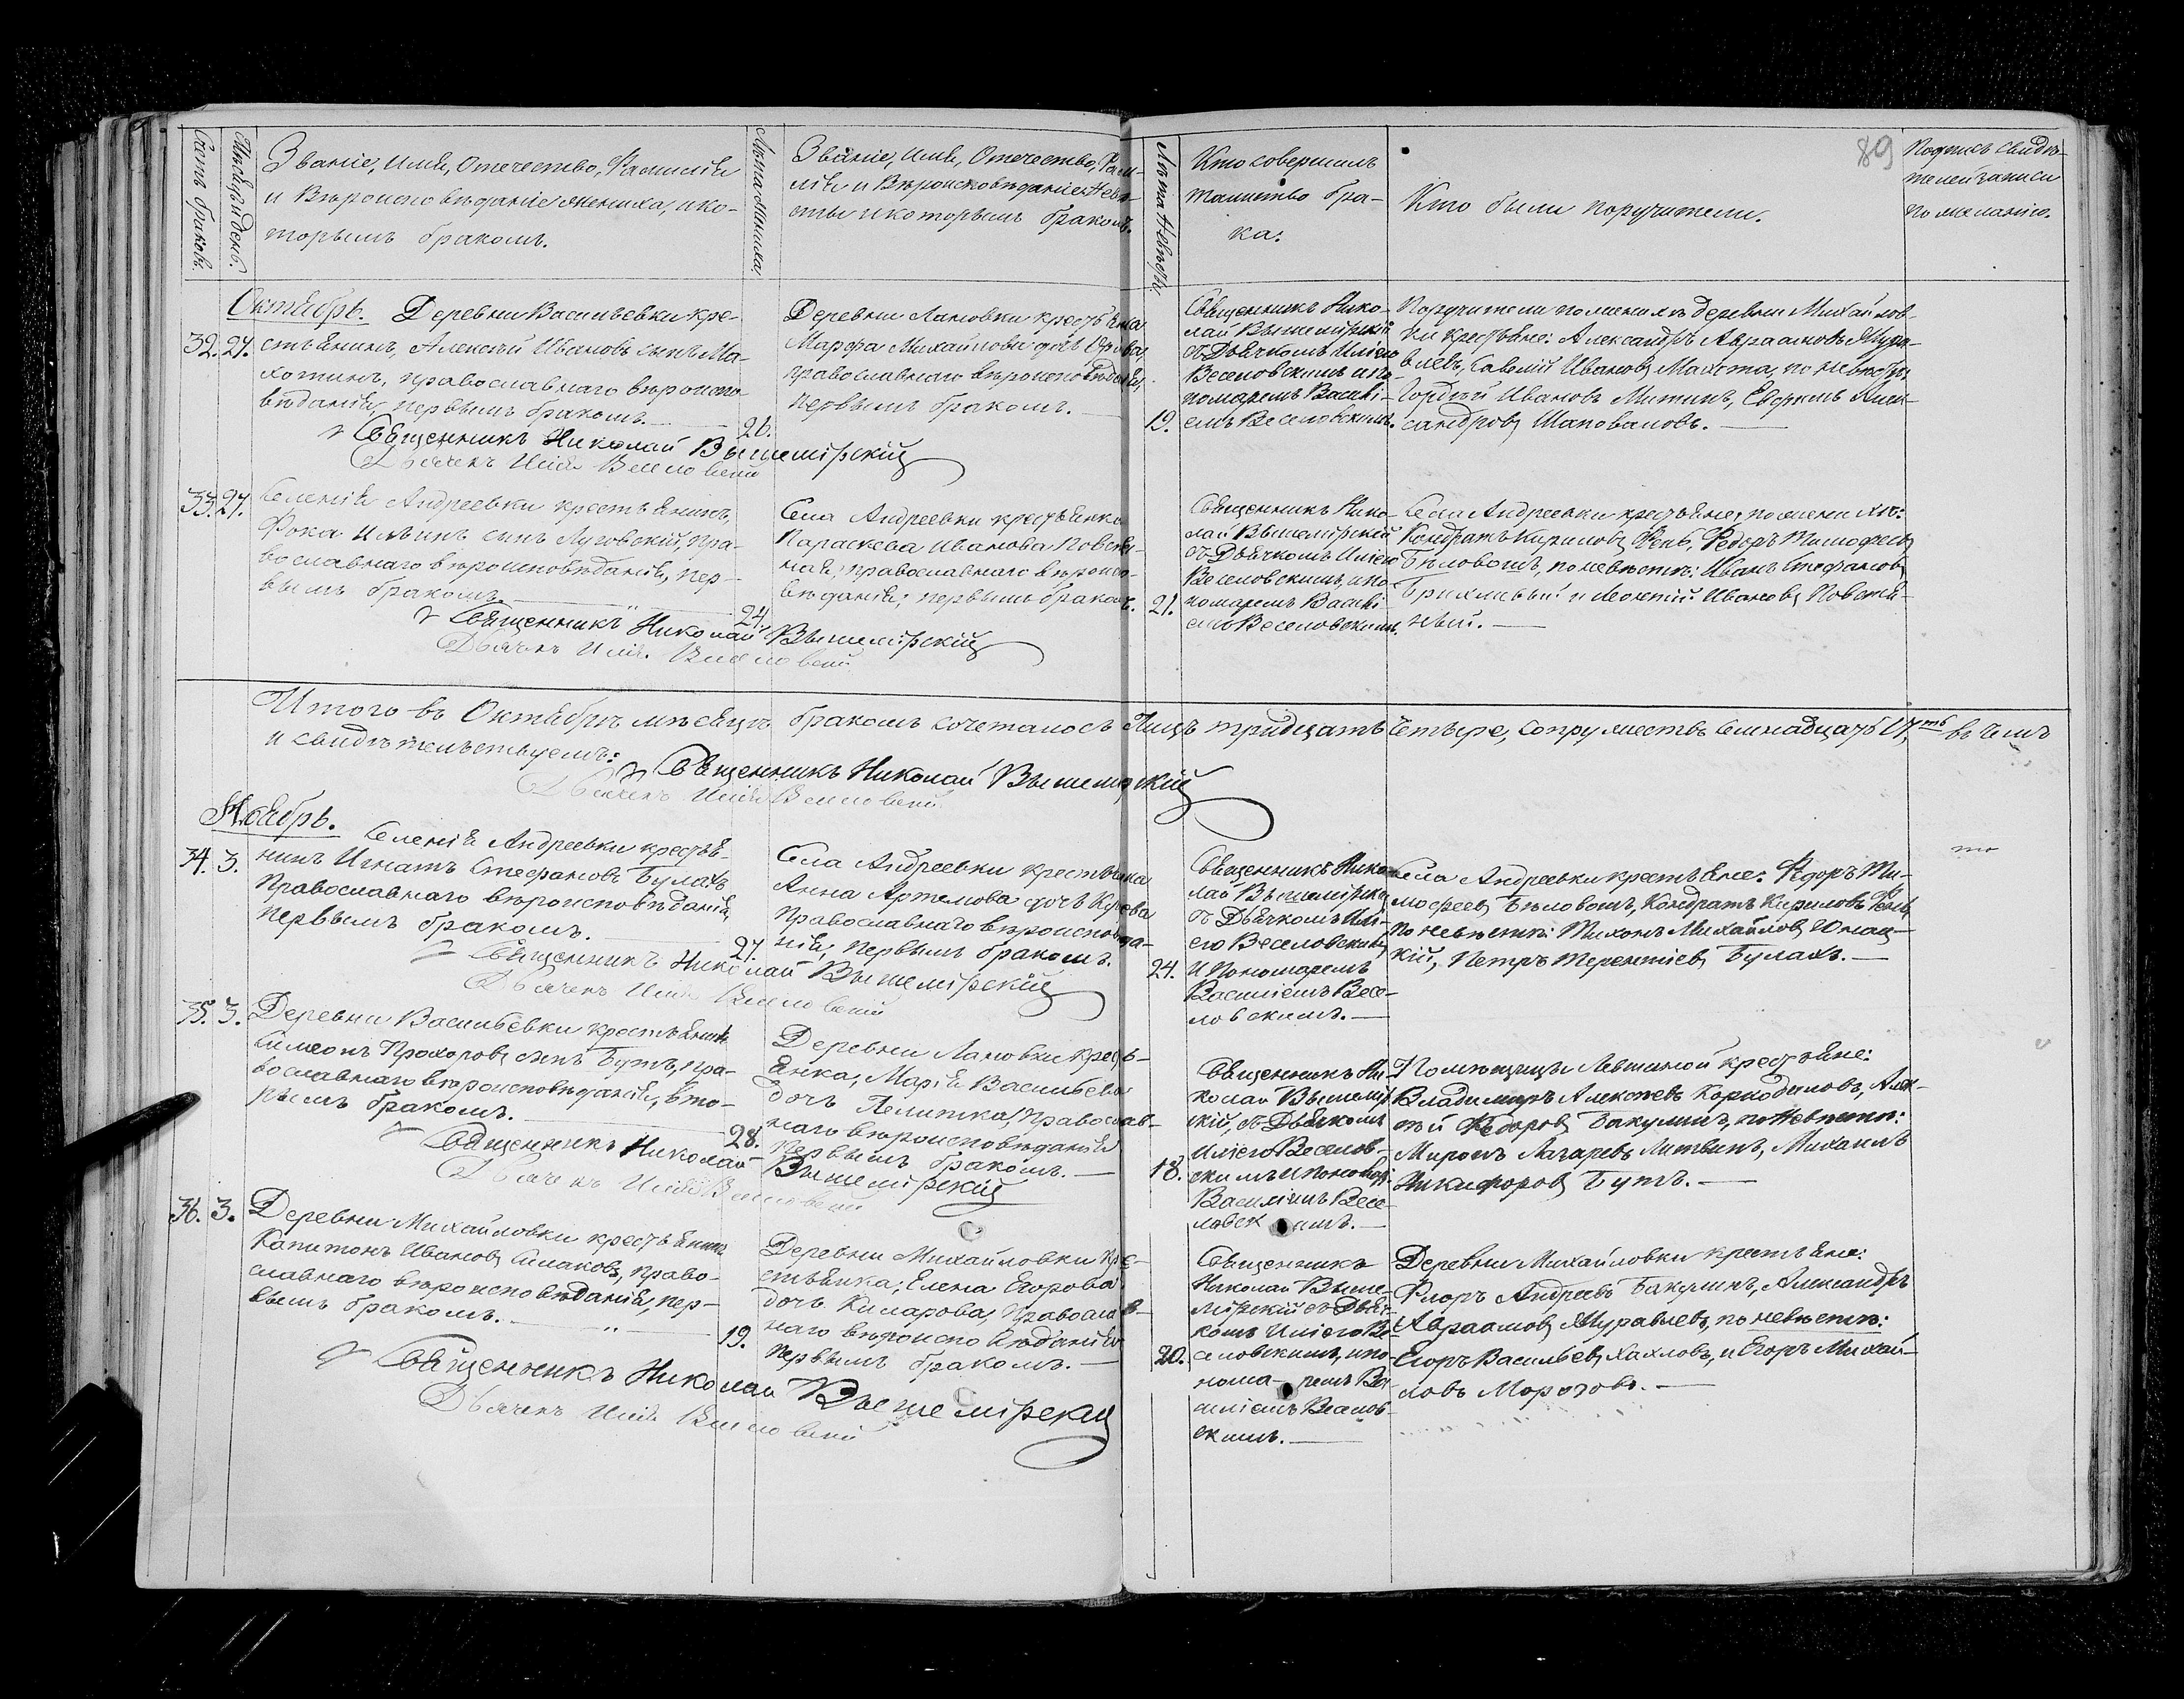 89
Счетъ браковъ.
Мѣсяцъ и день.
Званіе, имя, Отечество, Фамилія
и Вѣроисповѣданіе жениха, и ко-
торымъ бракомъ.
Лѣта жениха.
Званіе, имя, Отечество, Фами-
лія и Вѣроисповѣданіе Невѣ-
сты и которымъ бракомъ.
Лѣта Невѣсты.
Кто совершилъ
таинство бра-
ка:
Кто были поручители.
Подпись свидѣ-
телей записи
по желанію.
Октябрь. Деревни Васильевки кре-
32. 27. стьянинъ, Алексѣй Ивановъ сынъ Ма-
хотинъ, православнаго вѣроиспо-
вѣданія, первымъ бракомъ.
26.
Деревни Лановки крестьянка
Марфа Михайлова дочь
православнаго вѣроисповѣданія,
первымъ бракомъ.
19.
Священникъ Нико-
лай Вышемірскій
съ Дьячкомъ Иліею
Веселовскимъ и по-
номаремъ Василі-
емъ Веселовскимъ.
Поручители по женихѣ деревни Михайлов-
ки крестьяне: Александръ Авраамовъ Мура-
влевъ, Савелій Ивановъ Махота, по невѣстѣ
Гордѣй Ивановъ Митинъ, Евфимъ Алек-
сандровъ Шаповаловъ.
Священникъ Николай Вышемірскій
Дьячекъ Илія Веселовскій
33. 27. Селенія Андреевки крестьянинъ,
Фока Ильинъ сынъ Луговскій, пра-
вославнаго вѣроисповѣданія, пер-
вымъ бракомъ.
24.
Села Андреевки крестьянка
Параскева Иванова Повстя-
ная, православнаго вѣроиспо-
вѣданія, первымъ бракомъ.
21.
Священникъ Нико-
лай Вышемірскій
съ Дьячкомъ Иліею
Веселовскимъ, и по-
номаремъ Василі-
емъ Веселовскимъ.
Села Андреевки крестьяне, по женихѣ:
Кондратъ Кириловъ Фень, Федоръ Тимофеевъ
Бѣловолъ, по невѣстѣ: Иванъ Стефановъ
Брихливый и Леонтій Ивановъ Повстя-
ный.
Священникъ Николай Вышемірскій
Дьячекъ Илія Веселовскій
Итого въ Октябрѣ мѣсяцѣ бракомъ сочеталось Лицъ тридцать четыре, супружествъ семнадцать 17, въ чемъ
и свидѣтельствуемъ:
Священникъ Николай Вышемірскій
Дьячекъ Илія Веселовскій
Ноябрь.
Селенія Андреевки крестья-
34. 3. нинъ Игнатъ Стефановъ Булахъ
Православнаго вѣроисповѣданія,
первымъ бракомъ.
27.
Села Андреевки крестьянка
Анна Артемова дочь
Православнаго вѣроисповѣда-
нія, первымъ бракомъ.
24.
Священникъ Нико-
лай Вышемірскій
съ Дьячкомъ Илі-
ею Веселовскимъ
и Пономаремъ
Василіемъ Весе-
ловскимъ.
Села Андреевки крестьяне: Федоръ Ти-
мофеевъ Бѣловолъ, Кондратъ Кириловъ Фень,
по невѣстѣ: Тихонъ Михайловъ Юнац-
кій, Петръ Терентіевъ Булахъ.
Священникъ Николай Вышемірскій
Дьячекъ Илія Веселовскій
35. 3. Деревни Васильевки крестьянинъ
Симеонъ Прохоровъ сынъ Бутъ, пра-
вославнаго вѣроисповѣданія, вто-
рымъ бракомъ.
28.
Деревни Лановки кресть-
янка, Марія Васильева
дочь Лелитка, Православ-
наго вѣроисповѣданія
первымъ бракомъ.
18.
Священникъ Ни-
колай Вышемір-
скій, съ Дьячкомъ
Иліею Веселов-
скимъ и пономар:
Василіемъ Весе-
ловскимъ.
Помѣщицы Левшиной крестьяне:
Владиміръ Алексѣевъ Каркодиловъ, Алек-
сѣй Федоровъ Бакулинъ, по Невѣстѣ:
Миронъ Лазаревъ Литвинъ, Михаилъ
Никифоровъ Бутъ.
Священникъ Николай Вышемірскій
Дьячекъ Илія Веселовскій
36. 3. Деревни Михайловки крестьянинъ
Капитонъ Ивановъ Симаковъ, право-
славнаго вѣроисповѣданія, пер-
вымъ бракомъ.
19.
Деревни Михайловки кре-
стьянка, Елена Егорова
дочь Комарова, Православ-
наго вѣроисповѣданія
первымъ бракомъ.
20.
Священникъ
Николай Выше-
мірскій съ Дьяч-
комъ Иліею Ве-
селовскимъ, и по-
нома-ремъ Ва-
силіемъ Веселов-
скимъ.
Деревни Михайловки крестьяне:
Флоръ Андреевъ Бакулинъ, Александръ
Авраамовъ Муравлевъ, по невѣстѣ:
Егоръ Васильевъ Хахловъ, и Егоръ Михай-
ловъ Морозовъ.
Священникъ Николай Вышемірскій
Дьячекъ Илія Веселовскій